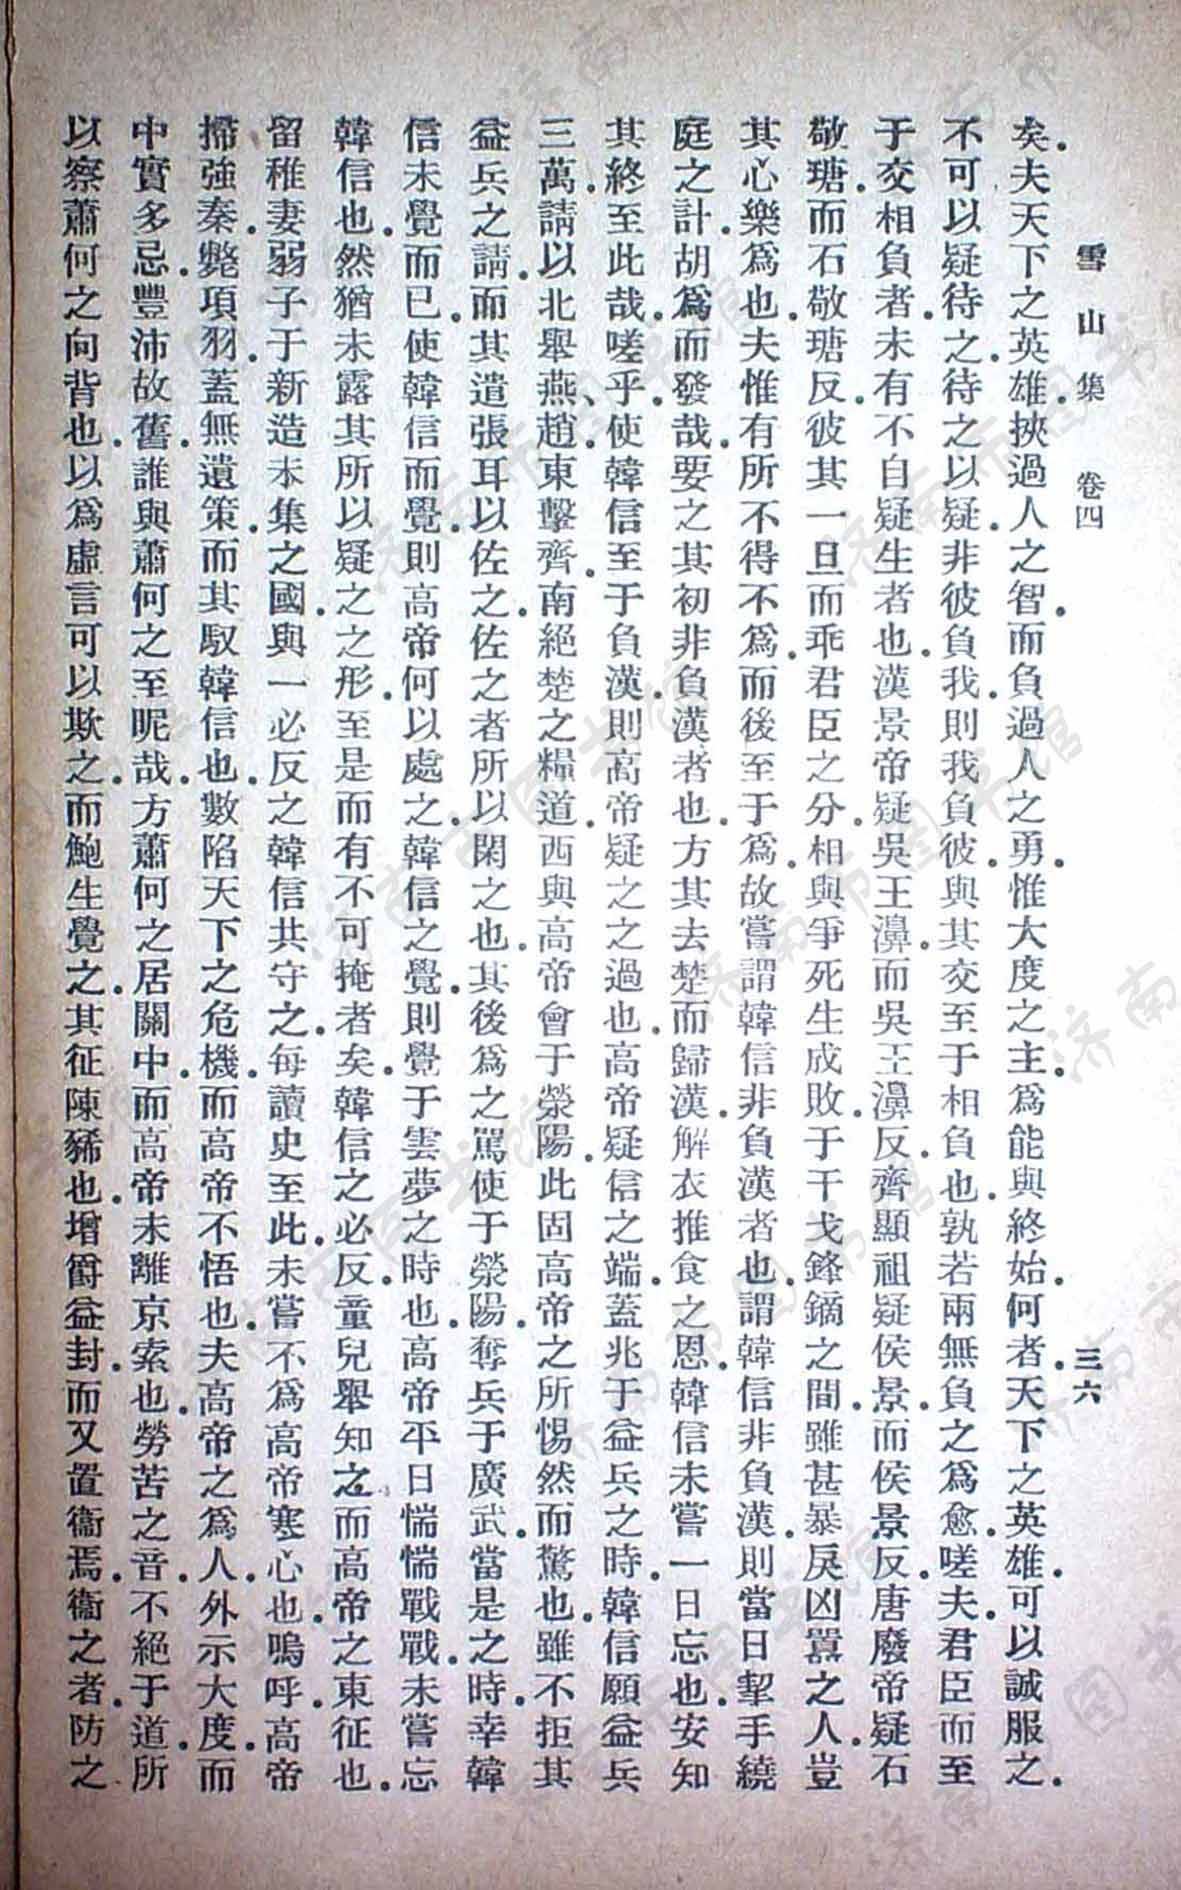 雪山集 卷四 三六
矣。夫天下之英雄、挾過人之智。而負過人之勇。惟大度之主。爲能與終始。何者。天下之英雄。可以誠服之。
不可以疑待之。待之以疑。非彼負我。則我負彼。與其交至于相負也。孰若兩無負之爲愈。嗟夫。君臣而至
于交相負者。未有不自疑生者也。漢景帝疑吳王濞。而吳王濞反。齊顯祖疑侯景。而侯景反。唐廢帝疑石
敬瑭。而石敬瑭反。彼其一旦而乖君臣之分。相與爭死生成敗。于干戈鋒鏑之間。雖甚暴戾凶嚚之人。豈
其心樂爲也。夫惟有所不得不爲。而後至于爲。故嘗謂韓信非負漢者也。謂韓信非負漢。則當日挈手繞
庭之計。胡爲而發哉。要之其初非負漢者也。方其去楚而歸漢。解衣推食之恩。韓信未嘗一日忘也。安知
其終至此哉。嗟乎。使韓信至于負漢。則高帝疑之之過也。高帝疑信之端。蓋兆于益兵之時。韓信願益兵
三萬。請以北舉燕、趙。東擊齊。南絕楚之糧道。西與高帝會于滎陽。此固高帝之所惕然而驚也。雖不拒其
益兵之請。而其遣張耳以佐之。佐之者所以閑之也。其後爲之駕使于滎陽。奪兵于廣武。當是之時。幸韓
信未覺而已。使韓信而覺。則高帝何以處之。韓信之覺。則覺于雲夢之時也。高帝平日惴惴戰戰。未嘗忘
韓信也。然猶未露其所以疑之之形。至是而有不可掩者矣。韓信之必反。童兒舉知之。而高帝之東征也。
留稚妻弱子于新造未集之國。與一必反之韓信共守之。每讀史至此。未嘗不爲高帝寒心也。嗚呼。高帝
掃強秦。斃項羽。蓋無遺策。而其馭韓信也。數陷天下之危機。而高帝不悟也。夫高帝之爲人。外示大度。而
中實多忌。豐沛故舊。誰與蕭何之至昵哉。方蕭何之居關中。而高帝未離京索也。勞苦之音。不絕于道。所
以察蕭何之向背也。以爲虛言可以欺之。而鮑生覺之。其征陳豨也。增爵益封。而又置衞焉。衞之者。防之